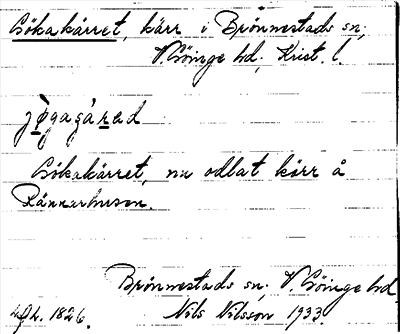 Gökakärret, kärr i Brönnestads sn;
V. Göinge hd; Krist. l.
jø̀gagárad
Gökakärret, nu odlat kärr å
Rännarhusen.
Brönnestads sn; V. Göinge hd.
1826. Nils Nilsson 1933.